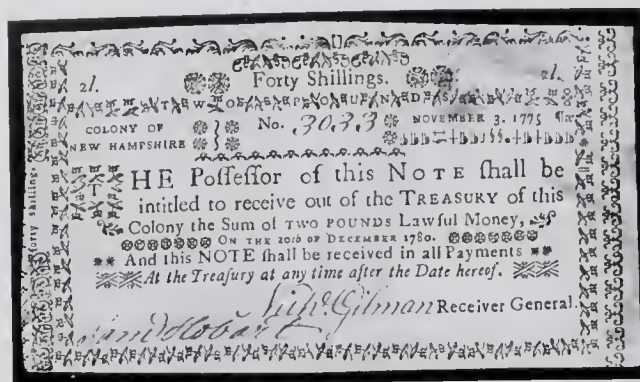 Forty Shillings.
2l. 2l.
TWO POUNDS
COLONY OF NEW HAMPSHIRE
No. 3033
NOVEMBER 3. 1775
forty shilling
THE Poſſeſſor of this NOTE ſhall be
intitled to receive out of the TREASURY of this
Colony the Sum of TWO POUNDS Lawful Money,
ON THE 20th OF DECEMBER 1780.
And this NOTE ſhall be received in all Payments
At the Treasury at any time after the Date hereof.
Gilman Receiver General.
Hobart